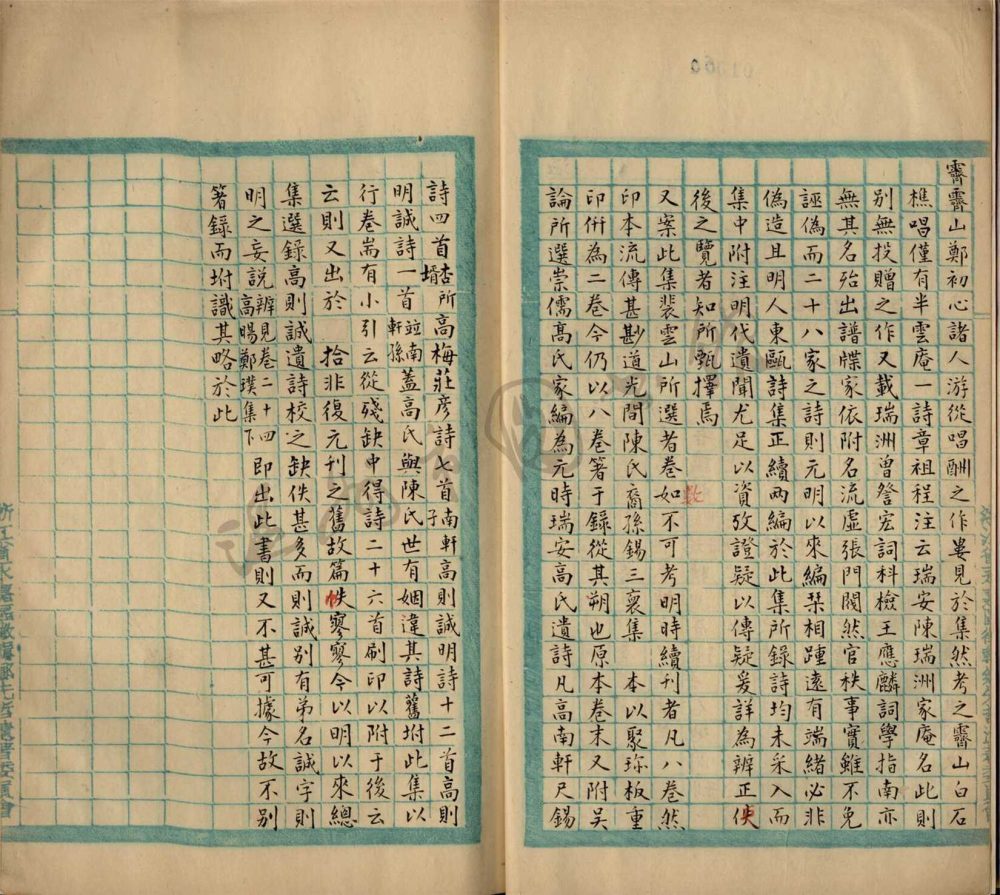 霽霽山鄭初心諸人游從唱酬之作屢見於集然考之霽山白石
樵唱僅有半雲庵一詩章祖程注云瑞安陳瑞洲家庵名此則
別無投贈之作又載瑞洲曽詧宏詞科檢王應麟詞學指南亦
無其名殆出譜牒家依附名流虛張門閥然官秩事實雖不免
誣偽而二十八家之詩則元明以來編栞相踵遠有端緒必非
偽造且明人東甌詩集正續兩編於此集所錄詩均未采入而
集中附注明代遺聞尤足以資攷證疑以傳疑爰詳為辨正使
後之覽者知所甄擇焉
又案此集裴雲山所選者卷如不可考明時續刊者凡八卷然
數
印本流傳甚尠道光間陳氏裔孫錫三裒集 本以聚珍板重
印併為二卷今仍以八卷箸于錄從其朔也原本卷末又附吴
論所選崇儒高氏家編為元時瑞安高氏遺詩凡高南軒尺錫
詩四首杏所壻高梅莊彥詩七首南軒子高則誠明詩十二首高則
明誠詩一首竝南軒孫蓋高氏與陳氏世有姻違其詩舊坿此集以
行卷耑有小引云從殘缺中得詩二十六首刷印以附于後云
云則又出於 拾非復元刊之舊故篇帙寥寥今以明以來總
集選錄高則誠遺詩校之缺佚甚多而則誠別有弟名誠字則
明之妄說辨見卷二十四高暘鄭璞集下即出此書則又不甚可據今故不別
箸錄而坿識其略於此